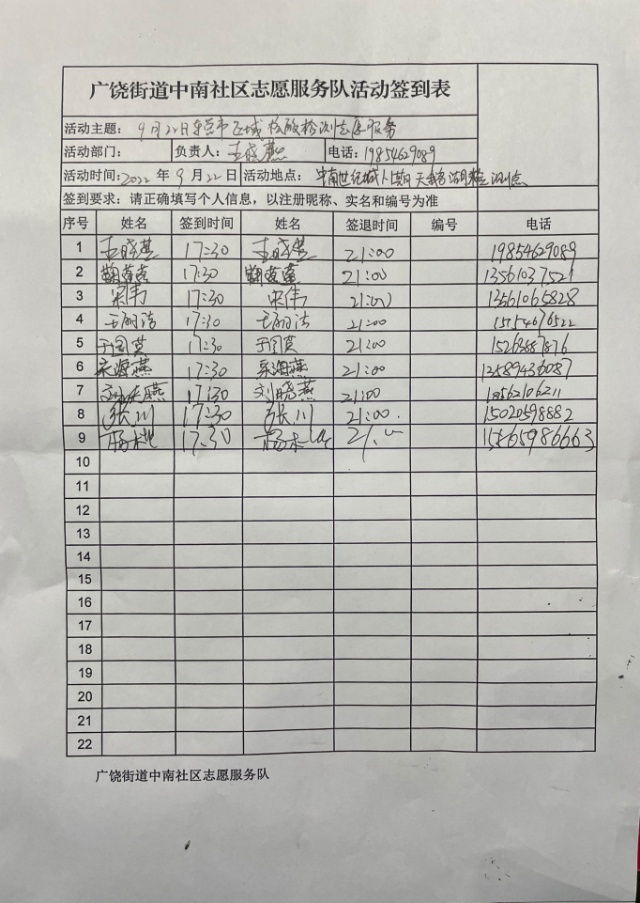 广饶街道中南社区志愿服务队活动签到表
活动主题：9月22日东营市区域核酸检测志愿服务
活动部门： 负责人： 电话：19854629089
活动时间：2022年9月22日 活动地点：中南世纪城 天鹅湖 测点
签到要求：请正确填写个人信息，以注册昵称、实名和编号为准
序号 姓名 签到时间 姓名 签退时间 编号 电话
1 17:30 21:00 19854629089
2 17:30 21:00 13561037521
3 宋伟 17:30 宋伟 21:00 13561065828
4 17:30 21:00 15154676522
5 于国英 17:30 于国英 21:00
6 宋海燕 17:30 宋海燕 21:00 13589436087
7 刘晓燕 17:30 刘晓燕 21:00
8 张川 17:30 张川 21:00. 15020598882
9 17:30 15565986663
10
11
12
13
14
15
16
17
18
19
20
21
22
广饶街道中南社区志愿服务队